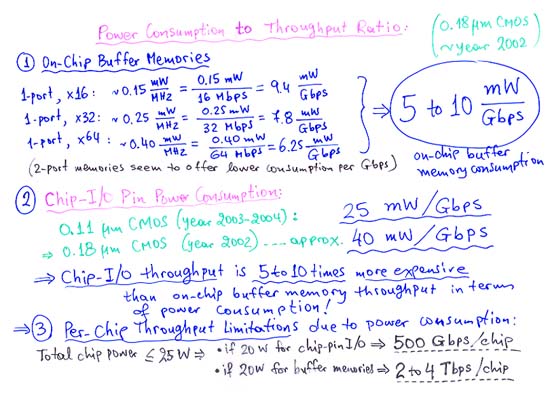 Power Consumption to Throughput Ratio:
(0.18 μm CMOS
~year 2002)
① On-Chip Buffer Memories
1-port, x16: ~0.15 mW/MHz = 0.15 mW/16 Mbps = 9.4 mW/Gbps
1-port, x32: ~0.25 mW/MHz = 0.25 mW/32 Mbps = 7.8 mW/Gbps
1-port, x64: ~0.40 mW/MHz = 0.40 mW/64 Mbps = 6.25 mW/Gbps
(2-port memories seem to offer lower consumption per Gbps)
⇒ 5 to 10 mW/Gbps
on-chip buffer
memory consumption
② Chip-I/O Pin Power Consumption:
0.11 μm CMOS (year 2003-2004): 25 mW/Gbps
⇒ 0.18 μm CMOS (year 2002) .... approx. 40 mW/Gbps
⇒ Chip-I/O throughput is 5 to 10 times more expensive
than on-chip buffer memory throughput in terms
of power consumption!
⇒ ③ Per-Chip Throughput Limitations due to power consumption:
Total chip power ≤ 25 W ⇒ • if 20W for chip-pin I/O ⇒ 500 Gbps/chip
• if 20W for buffer memories ⇒ 2 to 4 Tbps/chip